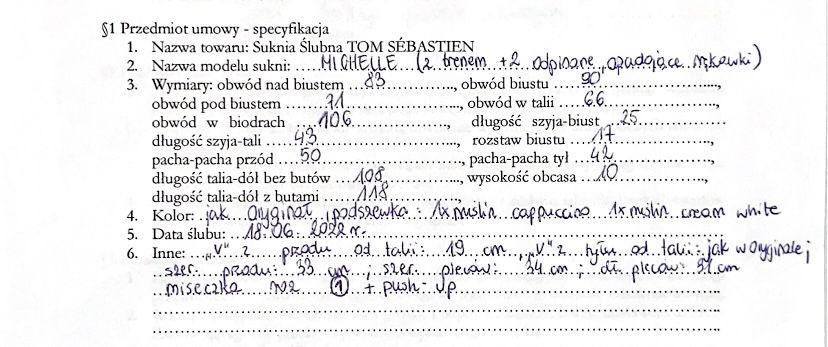 §1 Przedmiot umowy - specyfikacja
1. Nazwa towaru: Suknia Ślubna TOM SÉBASTIEN
2. Nazwa modelu sukni: MICHELLE (z trenem + 2 odpinane, opadające rękawki)
3. Wymiary: obwód nad biustem 83, obwód biustu 90,
obwód pod biustem 71, obwód w talii 66,
obwód w biodrach 106, długość szyja-biust 25
długość szyja-tali 43, rozstaw biustu 17,
pacha-pacha przód 50, pacha-pacha tył 42,
długość talia-dół bez butów 108, wysokość obcasa 10,
długość talia-dół z butami 118,
4. Kolor: jak oryginał, podszewka: 1x muślin cappuccino 1x muślin cream white
5. Data ślubu: 18.06.2022 r.
6. Inne: „V" z przodu od talii: 19 cm, „V" z tyłu od talii: jak w oryginale;
szer. przodu: 33 cm; szer. pleców: 34 cm; dł. pleców: 37 cm
miseczka nr 2 1 + push-up